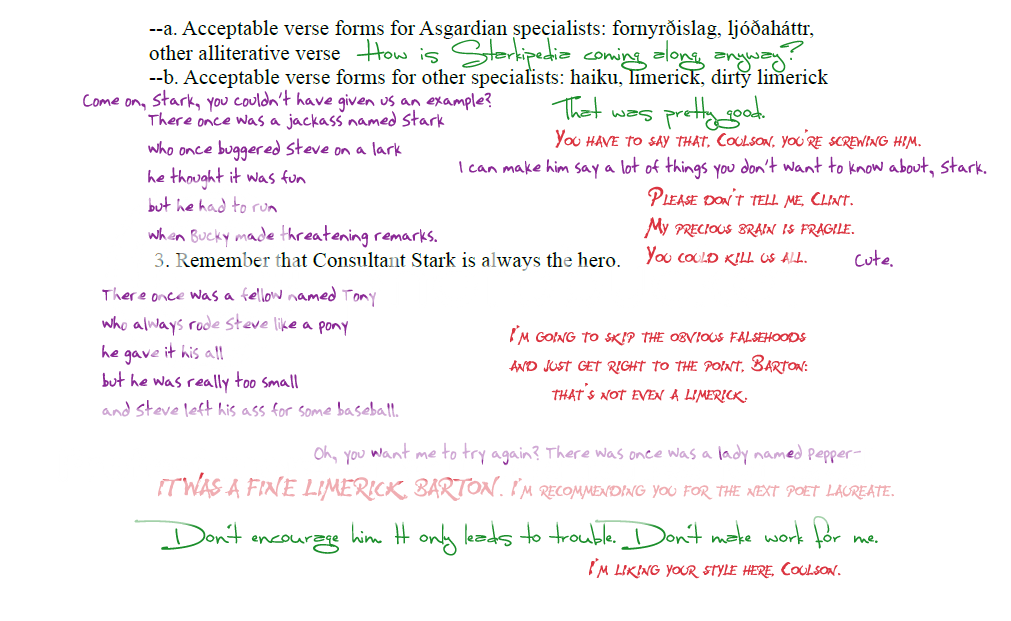 --a. Acceptable verse forms for Asgardian specialists: fornyrðislag, ljóðaháttr,
other alliterative verse How is Starkipedia coming along anyway?
--b. Acceptable verse forms for other specialists: haiku, limerick, dirty limerick
Come on, Stark, you couldn't have given us an example?
That was pretty good.
There once was a jackass named Stark
who once buggered Steve on a lark
he thought it was fun
but he had to run
when Bucky made threatening remarks.
You have to say that, Coulson, you're screwing him.
I can make him say a lot of things you don't want to know about, Stark.
Please don't tell me, Clint.
My precious brain is fragile.
You could kill us all.
Cute.
3. Remember that Consultant Stark is always the hero.
There once was a fellow named Tony
who always rode Steve like a pony
he gave it his all
but he was really too small
and Steve left his ass for some baseball.
I'm going to skip the obvious falsehoods
and just get right to the point, Barton:
that's not even a limerick.
Oh, you want me to try again? There was once was a lady named Pepper-
IT WAS A FINE LIMERICK, BARTON. I'm recommending you for the next poet laureate.
Don't encourage him It only leads to trouble. Don't make work for me.
I'm liking your style here, Coulson.